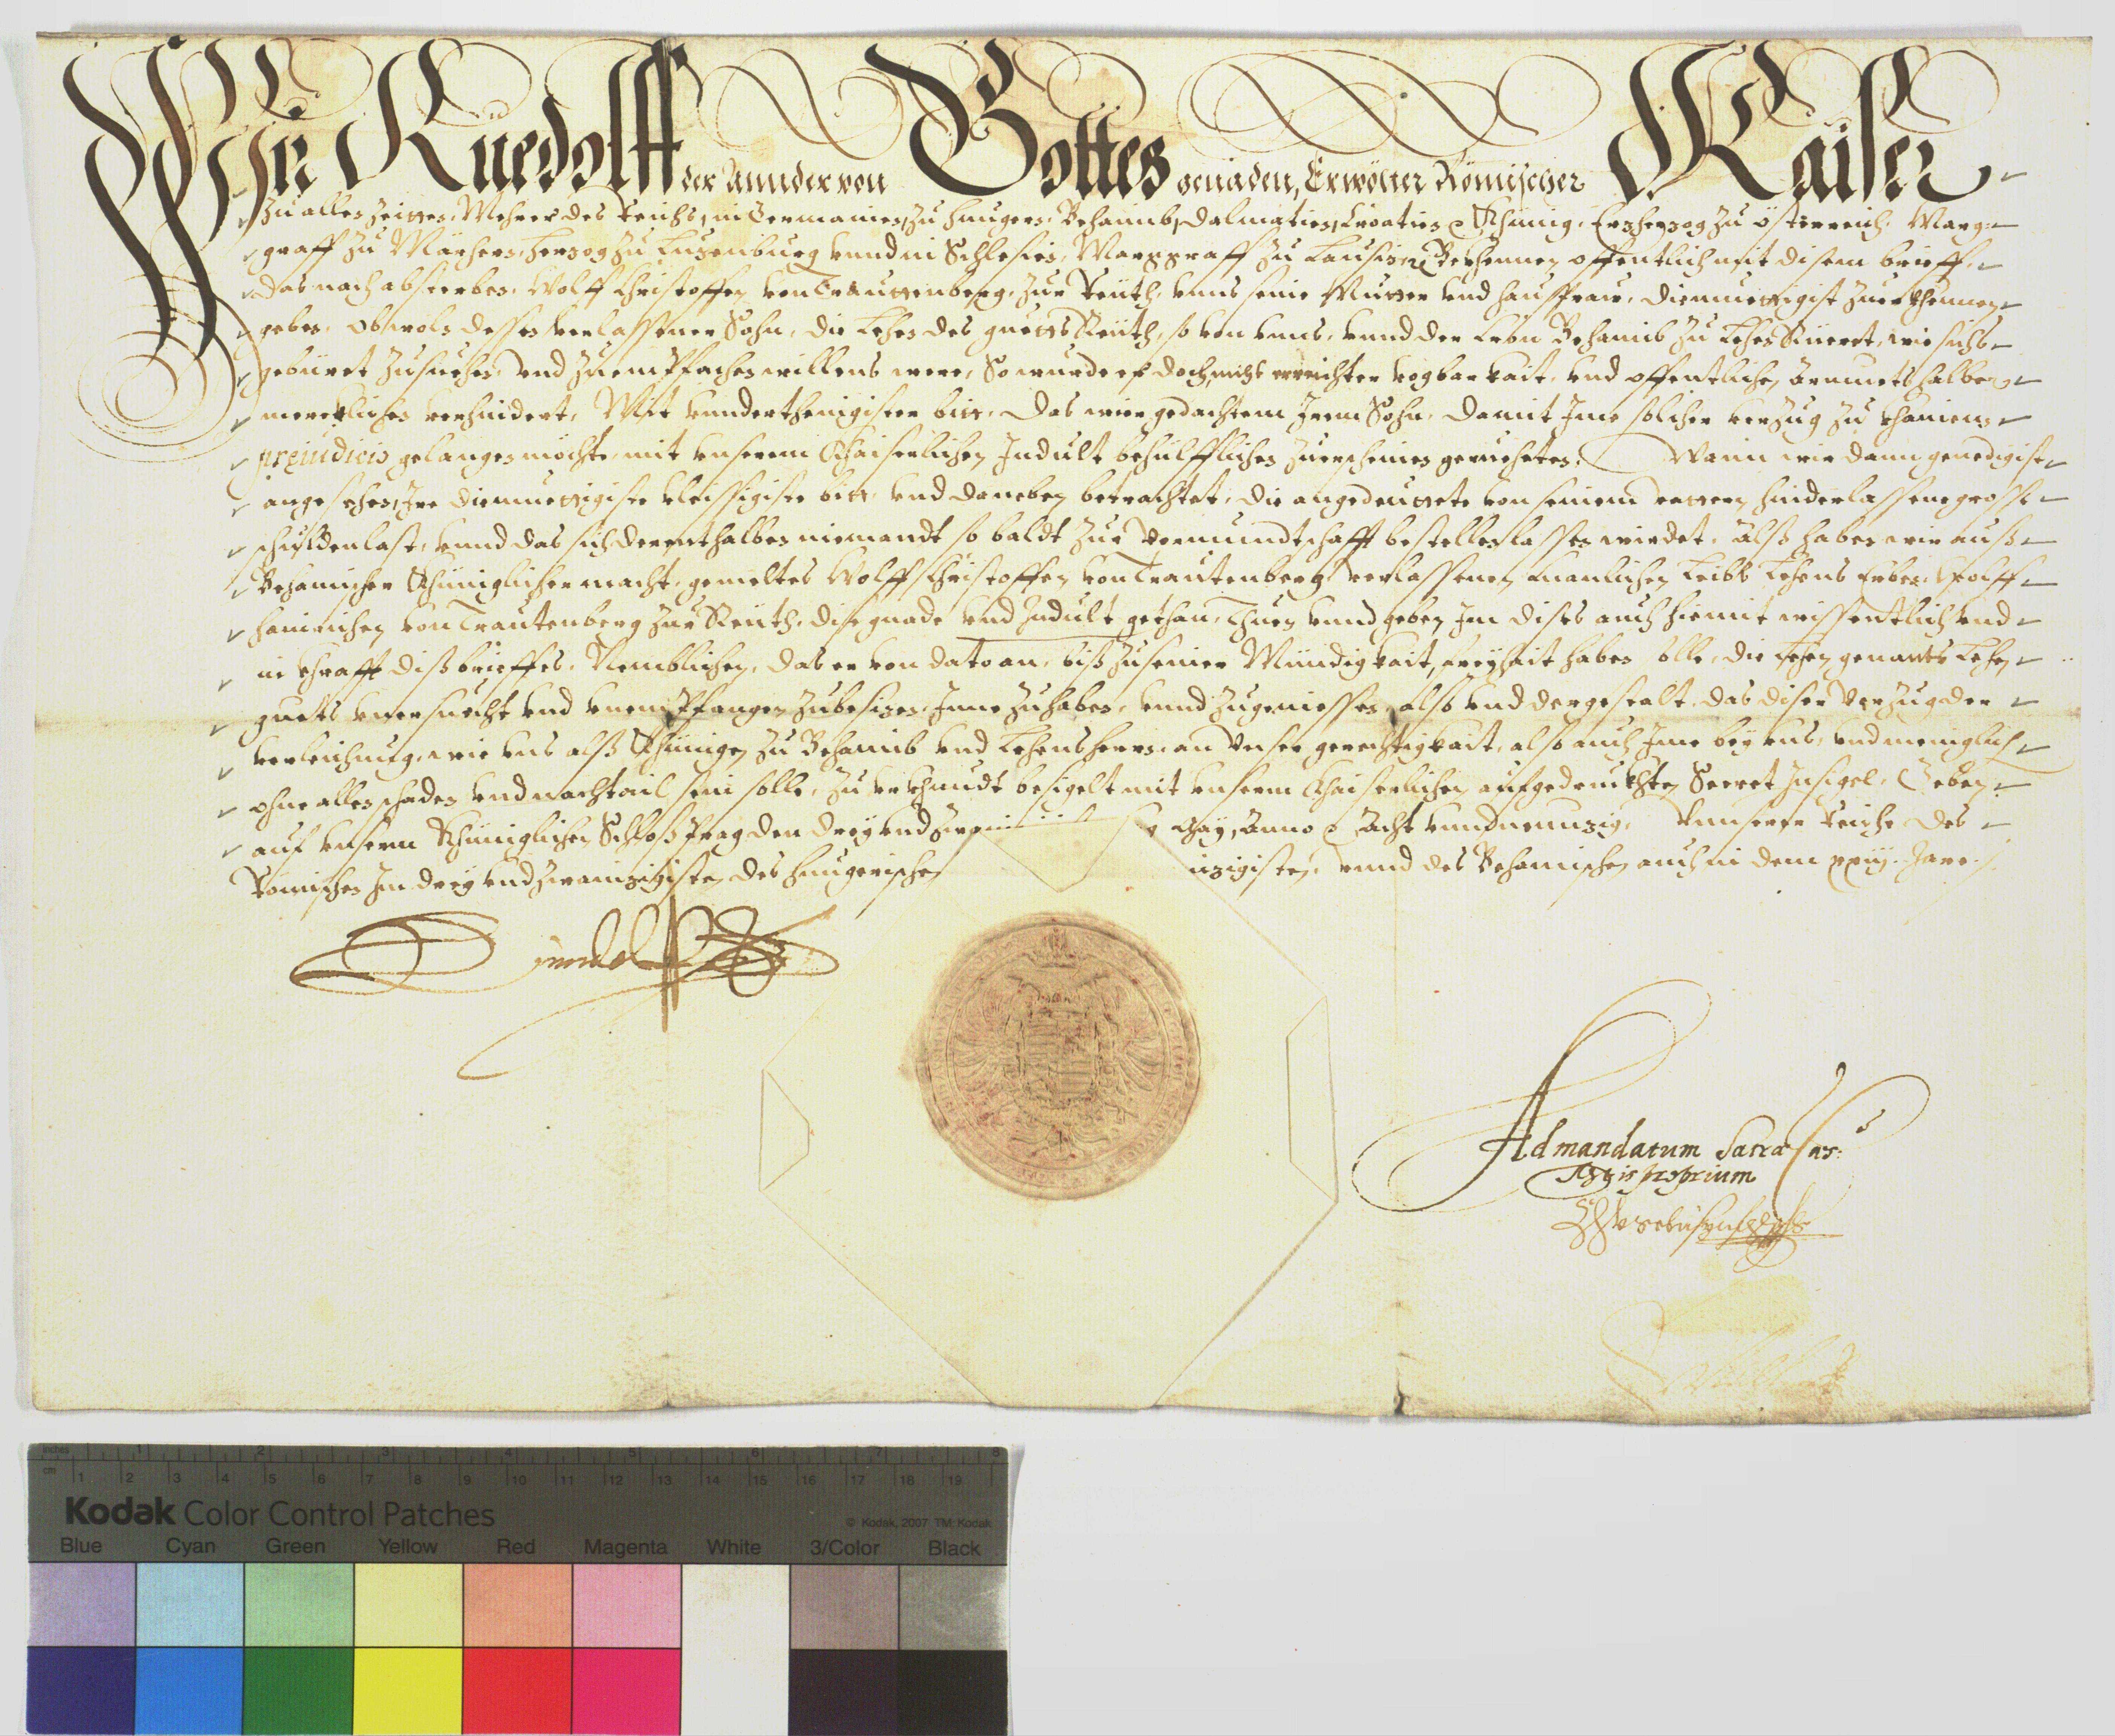 Wir Ruedolff der Annder von Gottes genaden, Erwölter Römischer Kaiser
zu allen Zeitten, Mehrer des Reichs, in Germanien, zu Hungern, Behaimb, Dalmatien, Croatien &c Khünig, Erzherzog zu Österreich, Marg-
graff zu Märhern, Herzog zu Luzenburg vnnd in Schlesien, Marggraff zu Lausizn Bekhennen offentlich mit disem brieff,
das nach absterben, Wolff Christoffen von Trauttenberg, zur Reüth, vnns seine Mutter vnd hausfraw, diemuettigist zuerkhennen
geben, Obwoln dessen verlassener Sohn, die Lehen des guetts Reüth, so von vnns, vnnd der Cron Behaimb zu Lehen Rüeret, wie sichs
gebüret zusuechen, vnd zuempfachen willens were, So wurde er doch, nicht erraichter vogbarkait, vnd offentlichen Armuets halben
mercklichen verhindert, Mit vnnderthenigister bitt, das wier gedachtem Jrem Sohn, damit Jme solcher verzug zu khainem
preiudicio gelangen möchte, mit vnserem Khaiserlichen Indult behülfflichen zuerscheinen gerueheten. Wann wir dann genedigist
angesehen, Jre diemuettigiste vleissigiste bitt, vnd daneben betrachtet, die angedeuttete von seinem vattern hinderlassene grosse
schuldenlast, vnnd das sich derenthalben niemandt so baldt zur Vormundtschafft bestellen lassen wirdet, Alß haben wir auß
Behamischer Khüniglicher macht, gemeltes Wolff Christoffen von Trautenberg verlassenen manlichen Leibs Lehens Erben, Wolff
Hainrichen von Trautenberg zur Reüth, dise gnade vnd Indult gethan, Thuen vnnd geben Jm dises auch hiemit wissentlich vnd
in khrafft diß brieffes, Nemblichen, das er von dato an, biß zu seiner Mündigkait, freyhait haben solle, die Lehen genants Lehen
guets vnersuecht vnd vnempfangen zubesizen, Jnne zuhaben, vnnd zugeniessen, also vnd dergestalt, das diser Verzug der
verleichung, wie vns alß Khünigen zu Behaimb vnd Lehensherrn, an Vnser gerechtigkait, also auch Jme bey vns, vnd meniglich
ohne allen schaden vnd nachtail sein solle, zu vrkhundt besigelt mit vnserm Khaiserlichen aufgedruckhten Secret Insigel, Geben
auf vnserm Khüniglichen Schloß Prag den drey vnd May, Anno &c Acht vnndneunzig, Vnnserer Reiche des
Römischen Im drey vnd zwainzigisten, des Hungerischen nzigisten, vnnd des Behamischen auch in dem xxiij. Jare.
Ruedolff
Ad mandatum Sacrae Caes:
Regis proprium